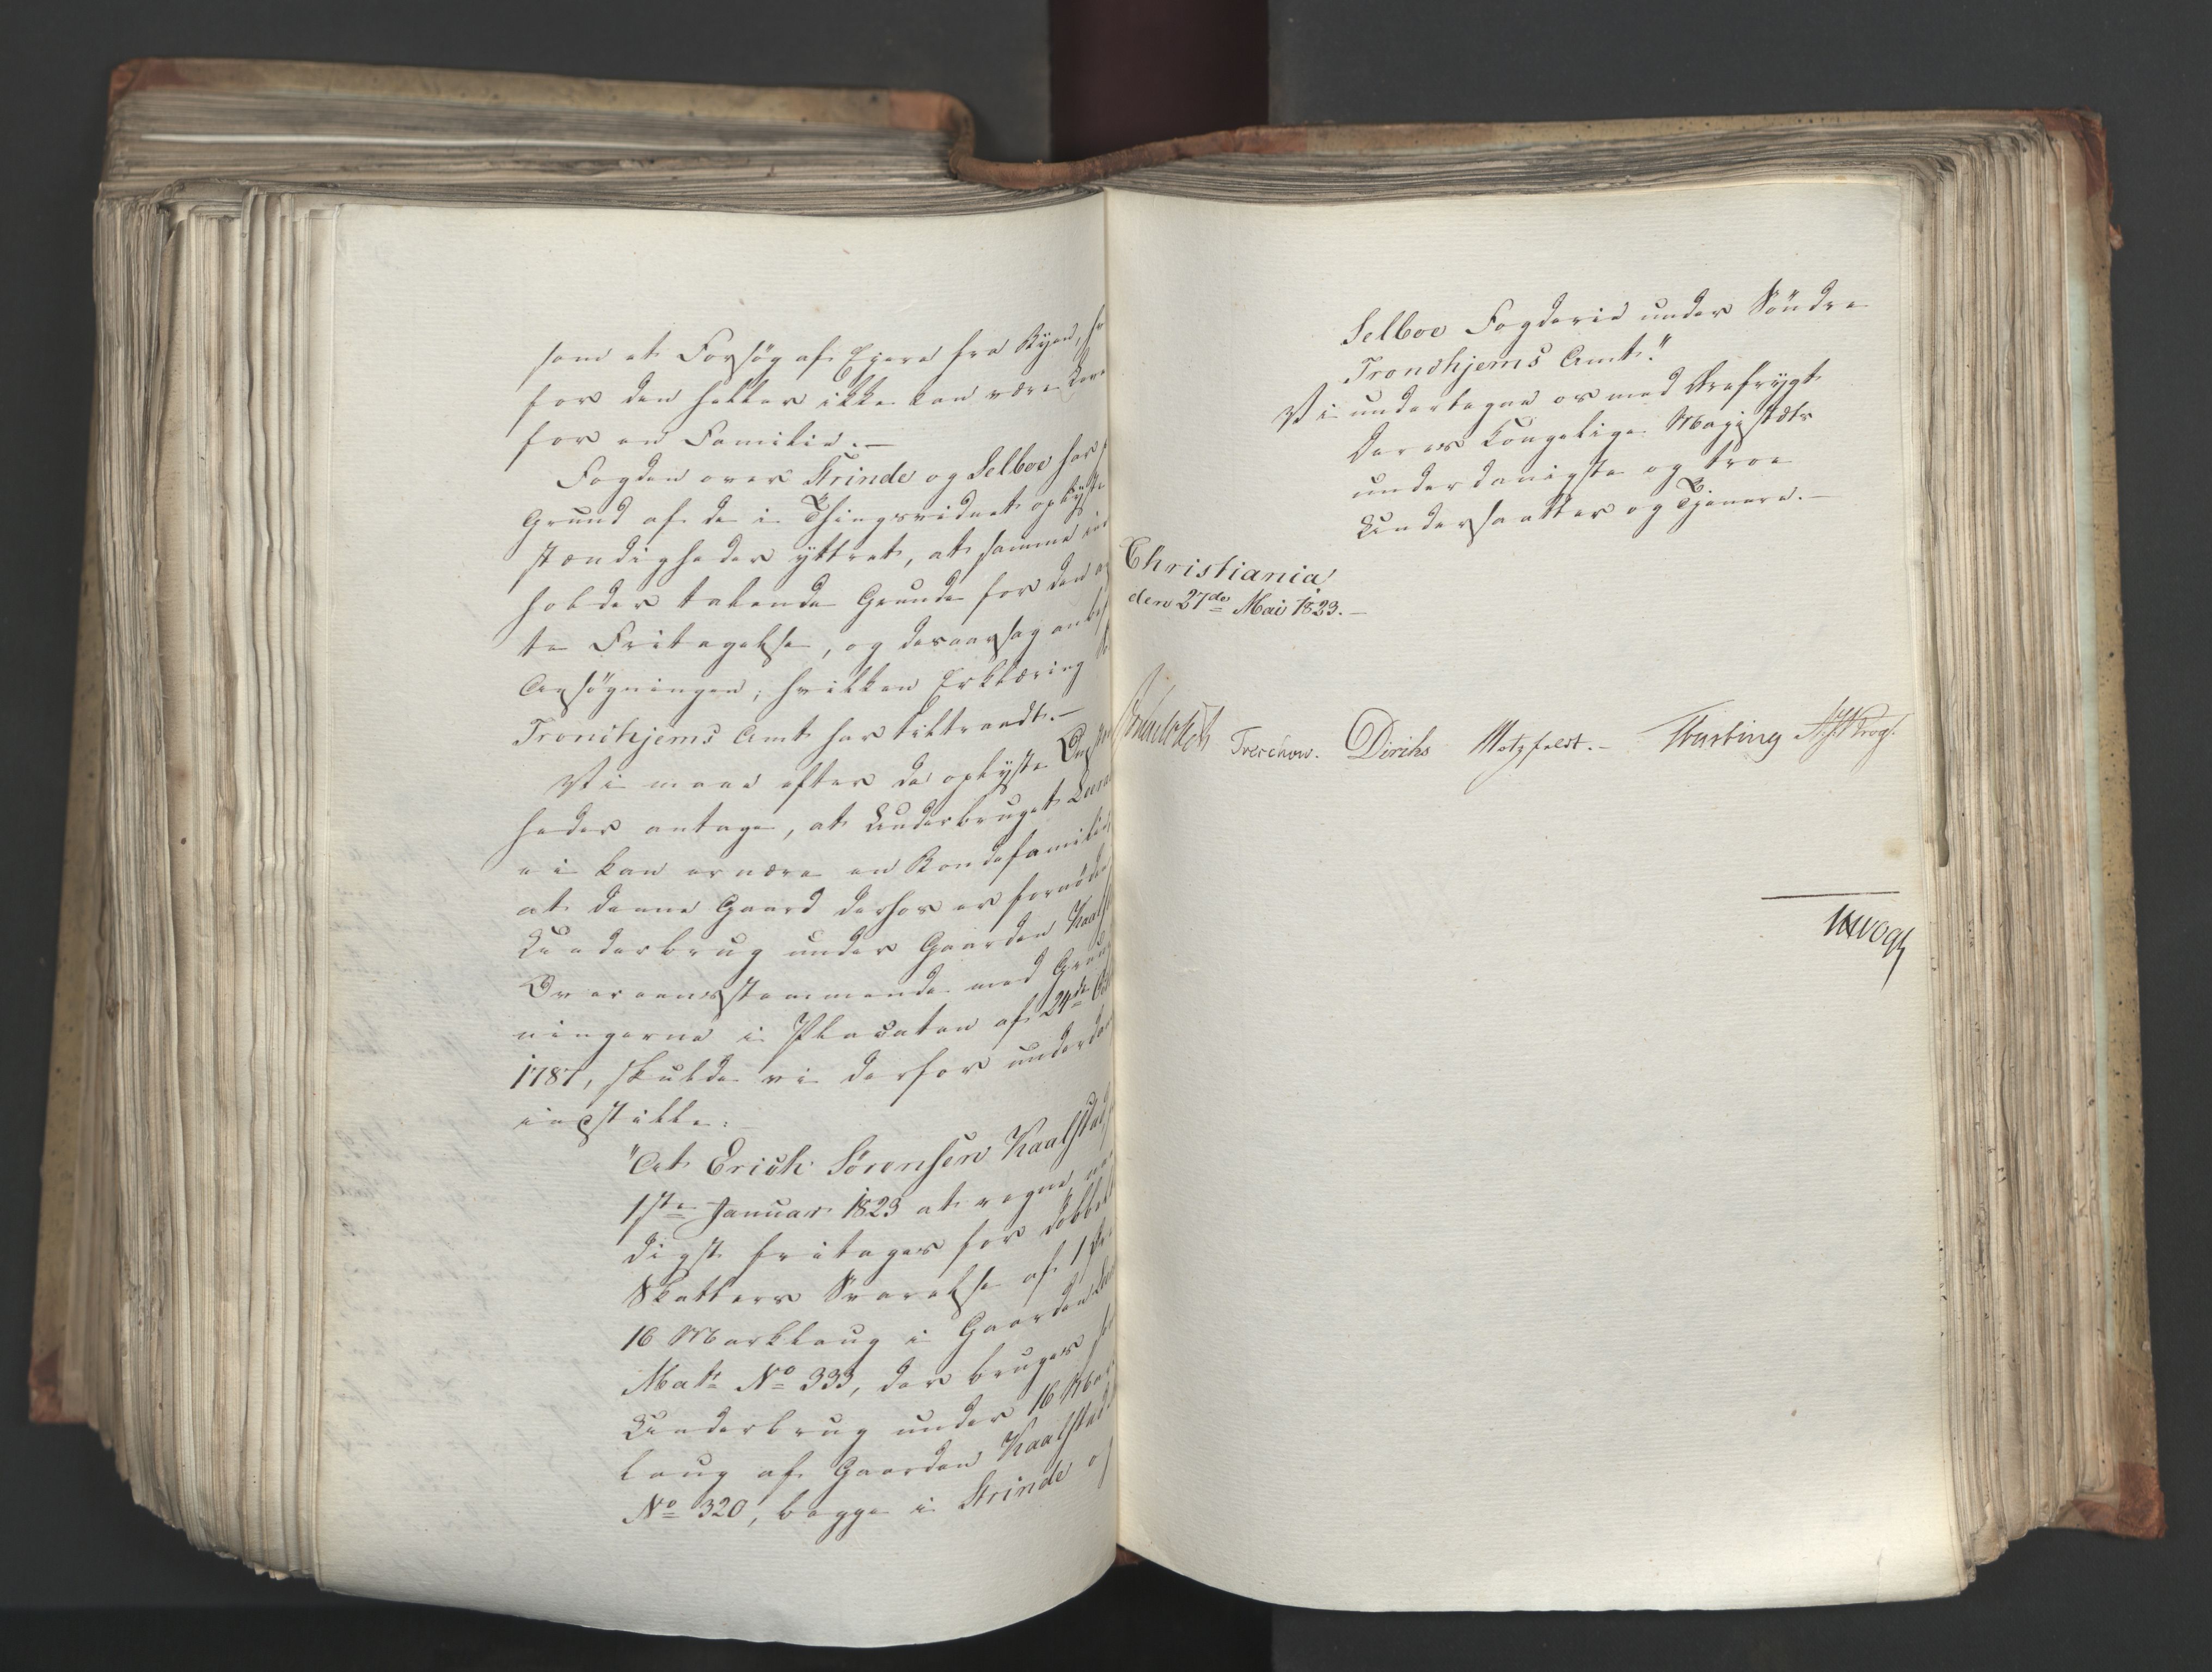 som et Forsøg af Ejere fra Byen, hv
for den heller ikke kan være
for en Familie. —
Fogden over Strinde og Selboe har
Grund af de i Thingsvidnet oplyste
stændigheder yttret, at samme in
holder talende Grunde for den
te Fritagelse, og desaarsag anbef
Ansøgningen, hvilken Erklæring
Trondhjems Amt har tiltraadt. —
Vi maae efter de oplyste Omst
heder antage, at Underbruget
ei kan ernære en Bondefamilie
at denne Gaard derhos er fornøde
Underbrug under Gaarden Kaalst
Overeensstemmende med Grund
ningerne i Placaten af 24de
1787, skulde vi derfor underda
indstille:
"At Erich Sørensen Kaalstad
1ste Januar 1823 at regne
digst fritages for dobbelt
Skatters Svarelse af 1
16 Marklaug i Gaarden
Matr. No 333, der bruges
Underbrug under 16 Mar
laug af Gaarden Kaalstad
No 320, begge i Strinde og
Selboe Fogderie under Søndre
Trondhjems Amt."
Vi undertegne os med Ærefrygt
Deres Kongelige Majestæts
underdanigste og troe
Undersaatter og Tjenere. —
Christiania
den 27de Mai 1823. —
Treschow. Diriks Motzfeldt. — Fasting Krog.
Vogt